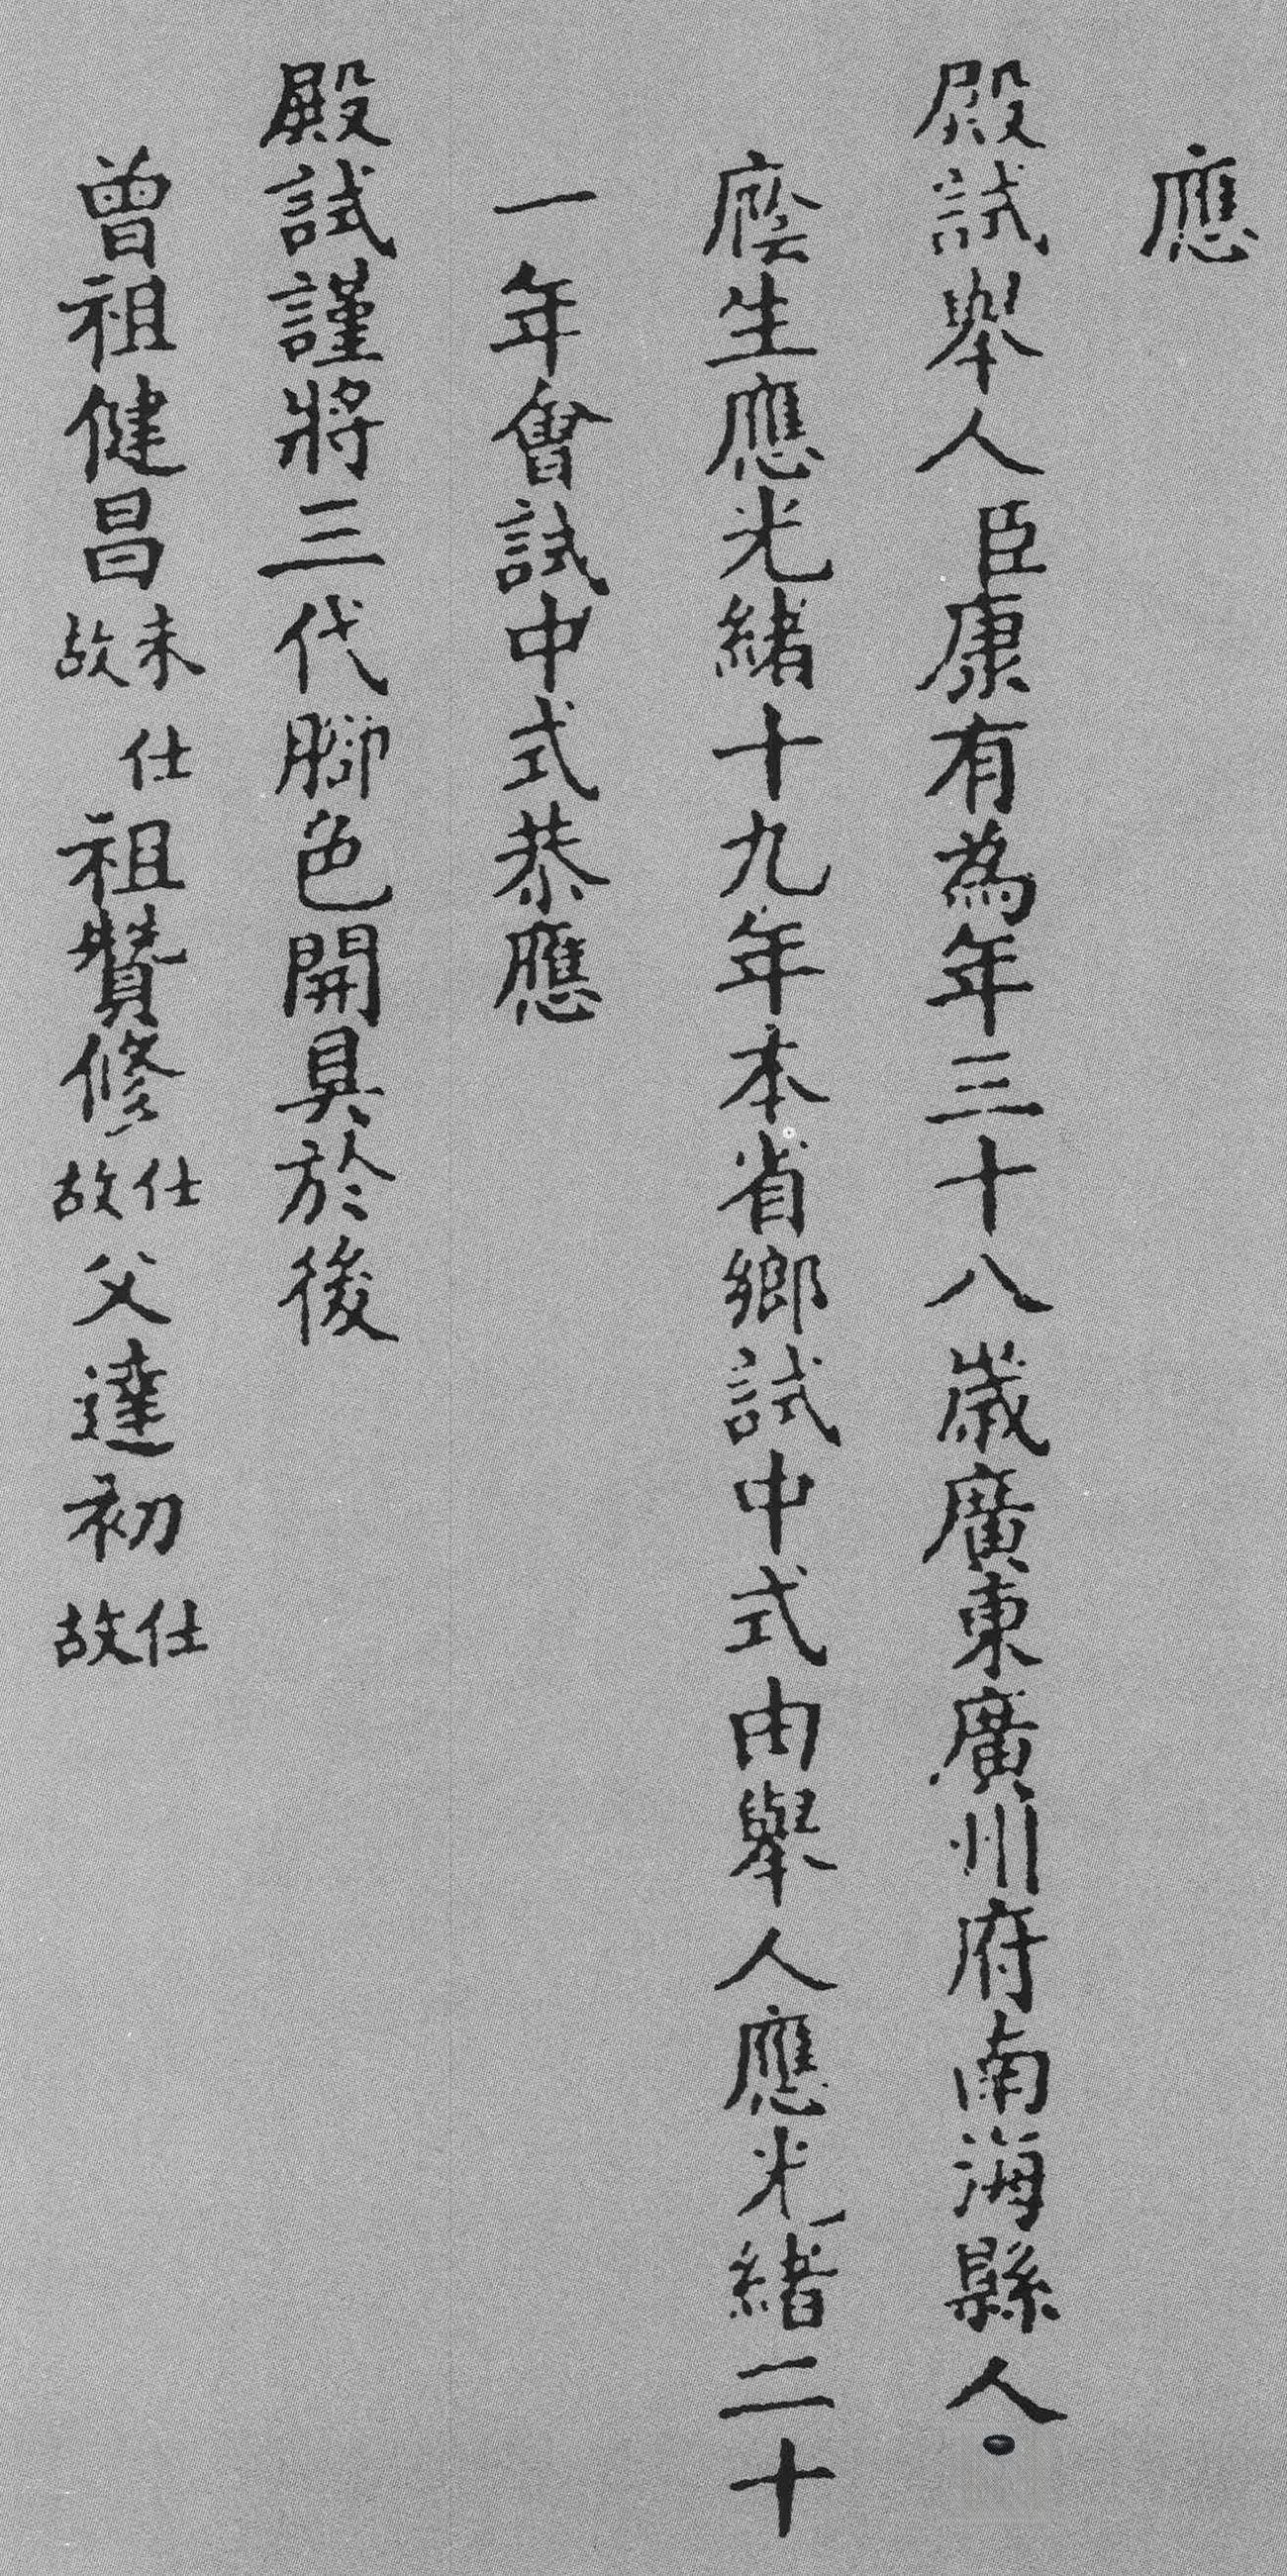 應
殿試舉人臣康有為年三十八歲廣東廣州府南海縣人
廕生應光緒十九年本省鄉試中式由舉人應光緒二十
一年會試中式恭應
殿試謹將三代腳色開具於後
曾祖健昌未仕故祖贊修仕故父達初仕故